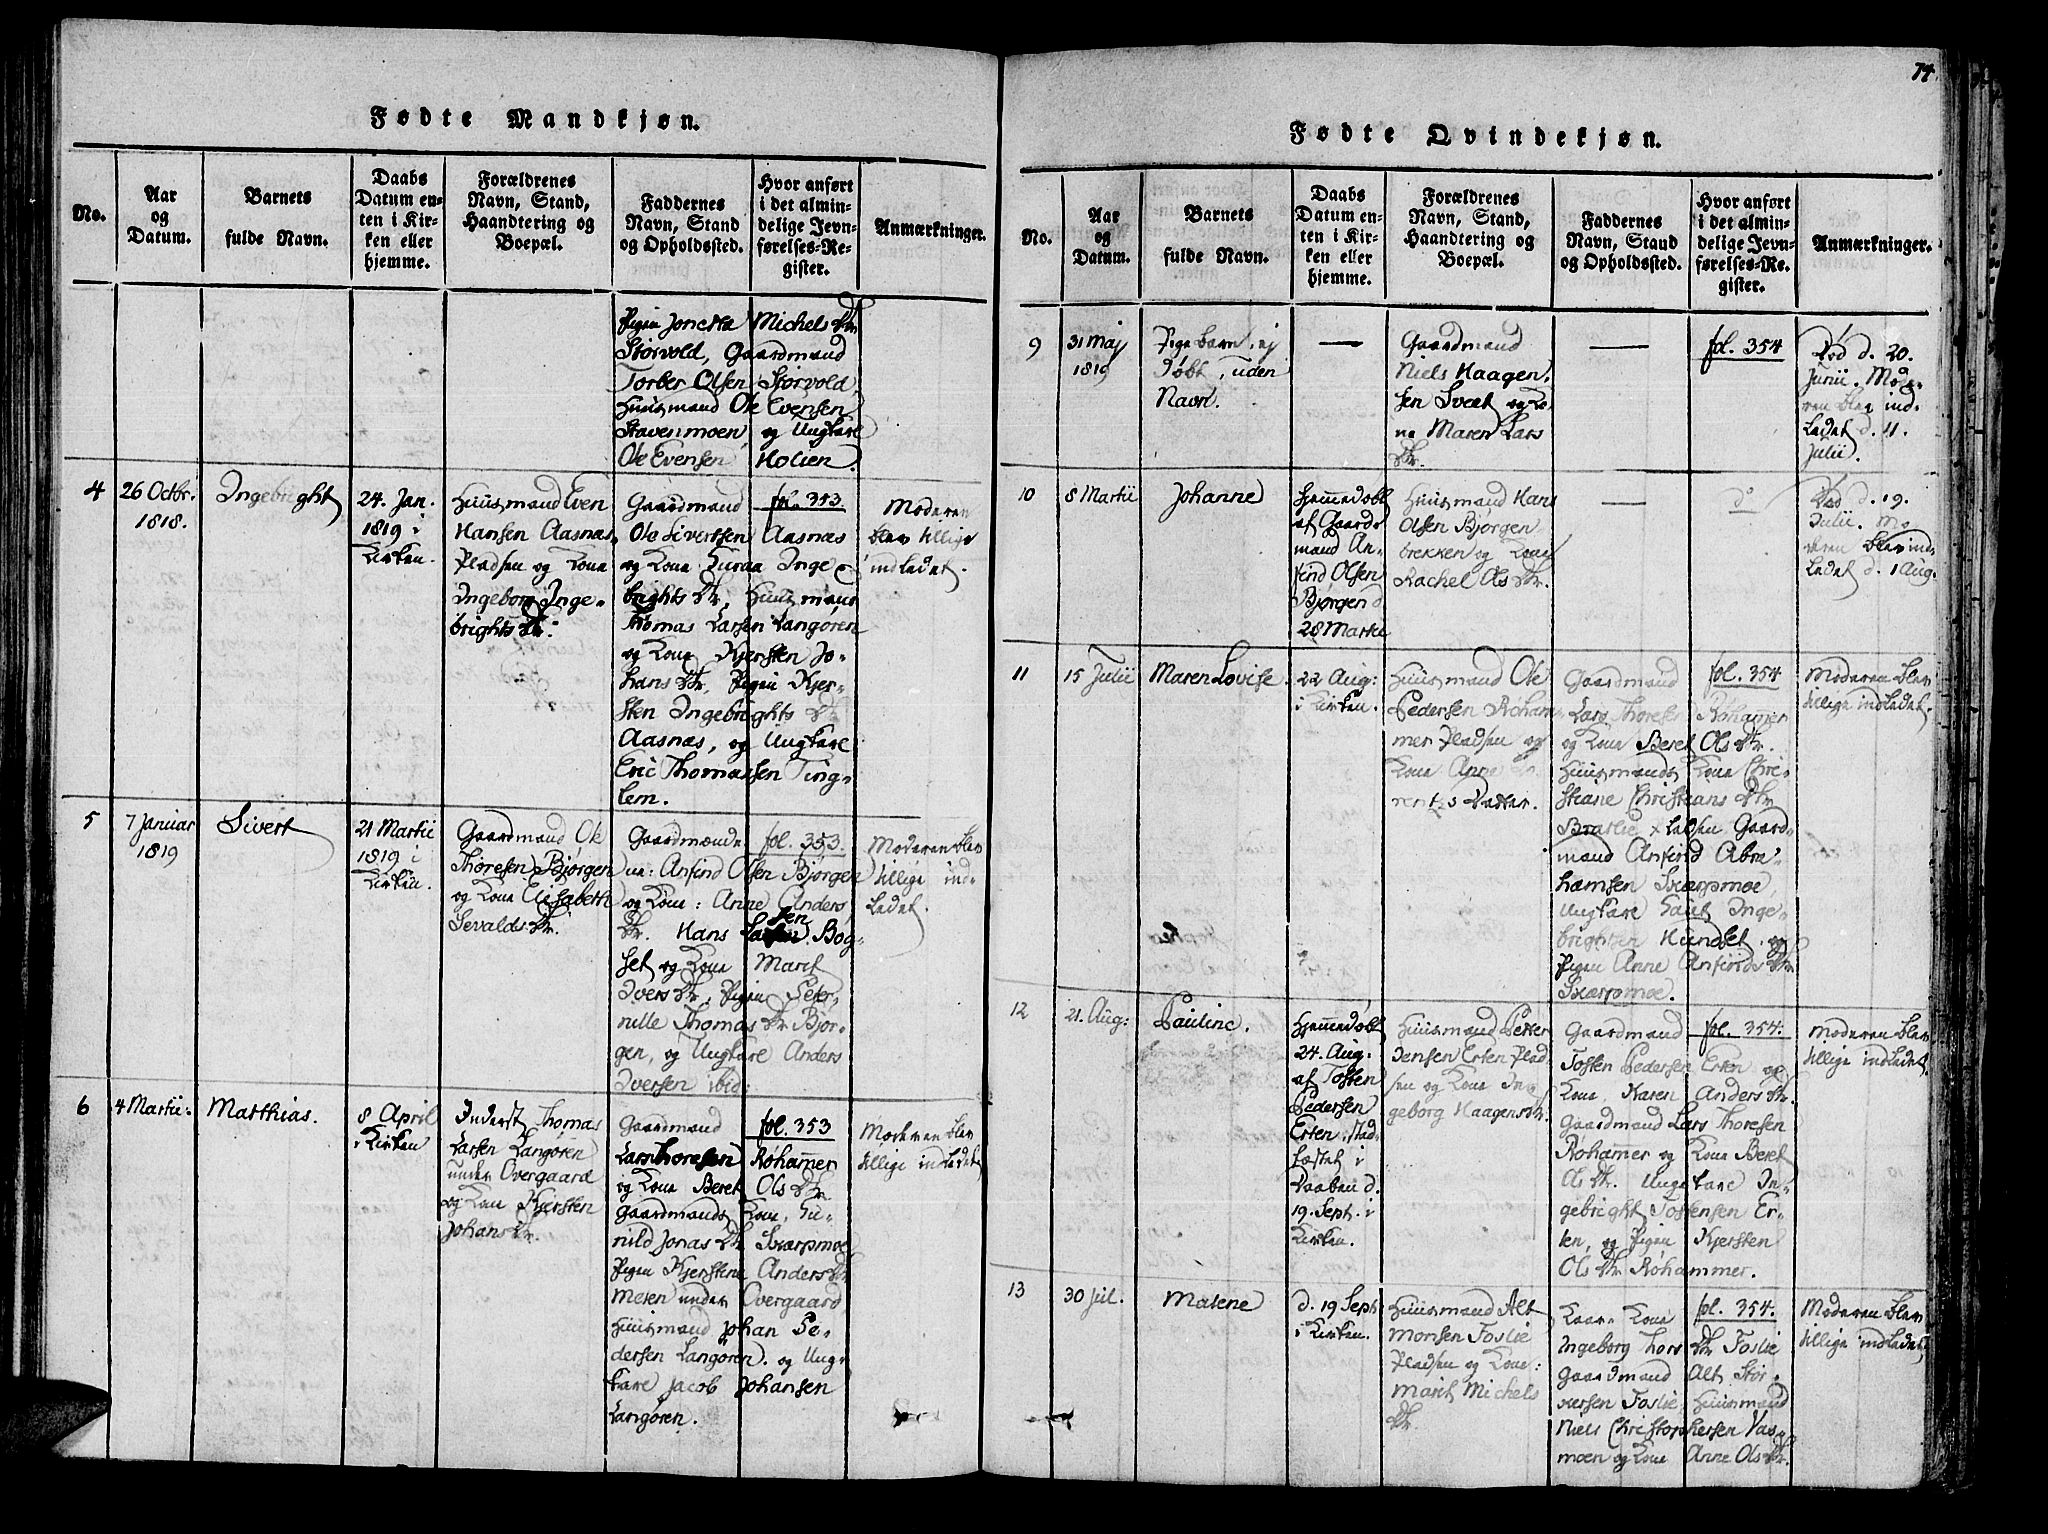 74.
Fødte Mandkjøn.
No.
Aar
og
Datum.
Barnets
fulde Navn.
Daabs
Datum en-
ten i Kir-
ken eller
hjemme.
Forældrenes
Navn, Stand,
Haandtering og
Boepæl.
Faddernes
Navn, Stand
og Opholdssted.
Hvor anført
i det almin-
delige Jevn-
førelses-Re-
gister.
Anmærkninger.
Pigen Jonetta Michels Dtr
Storvold, Gaardmand
Torber Olsen Storvold,
Huusmand Ole Evensen
Stavenmoen, og Ungkarl
Ole Evensen Holien.
4
26 Octbr.
1818.
Ingebright
24. Jan.
1819 i
Kirken.
Huusmand Even
Hansen Aasnæs
Pladsen og Kone
Ingeborg Inge-
brights Dtr.
Gaardmand
Ole Sivertsen Aasnæs
og Kone Inge-
brights Dtr, Huusmand
Thomas Larsen Langøren
og Kone Kjersten Jo-
hans Dtr, Pigen Kjer-
sten Ingebrights Dtr
Aasnæs, og Ungkarl
Eric Thomassen Ting-
lem.
fol. 353.
Moderen
blev tillige
indledet.
5
7 Januar
1819
Sivert
21 Martii
1819 i
Kirken.
Gaardmand Ole
Thoresen Bjørgen
og Kone Elisabeth
Sevalds Dtr.
Gaardmænde-
ne: Anfind Olsen Bjørgen
og Kone: Anne Anders
Dtr. Hans Bog-
set og Kone Marit
Ivers Dtr. Pigen Peter-
nille Thomas Dtr Bjør-
gen, og Ungkarl Anders
Iversen ibid:
fol. 353.
Moderen blev
tillige ind-
ledet.
6
4 Martii.
Matthias.
8 April
i Kirken
Inderst Thomas
Larsen Langøren
under Overgaard
og Kone Kjersten
Johans Dtr.
Gaardmand
Lars Thoresen Røhammer
og Kone Beret Ols Dtr.
Gaardmands Kone, Gu-
nild Jonas Dtr Skarpmoe
Pigen Kjerstene Anders Dtr
Meren under Overgaard
Huusmand Johan Pe-
dersen Langøren. og Ung-
karl Jacob Johansen
Langøren.
fol. 353
Moderen blev
tillige indledet
Fødte Qvindekjøn.
No.
Aar
og
Datum.
Barnets
fulde Navn.
Daabs
Datum en-
ten i Kir-
ken eller
hjemme.
Forældrenes
Navn, Stand,
Haandtering og
Boepæl.
Faddernes
Navn, Stand
og Opholdssted.
Hvor anført
i det almin-
delige Jevn-
førelses-Re-
gister.
Anmærkninger.
9
31 Maj
1819
Pigebarn, ej
Døbt, uden
Navn.
—
Gaardmand
Niels Haagen-
sen Sveet og Ko-
ne Maren Lars
Dtr.
—
fol. 354
Død d. 20.
Junii. Mode-
ren blev ind-
ledet d. 11.
Julii.
10
8 Martii
Johanne
Hjemmedøbt
af Gaard-
mand An-
find Olsen
Bjørgen d.
28 Martii
Huusmand Hans
Olsen Bjørgen
brekken og Kone
Rachel Ols Dtr.
—
do
Død d. 19.
Julii. Mo-
deren blev ind-
ledet d. 1 Aug.
11
15 Julii
Maren Lovise.
22 Aug:
i Kirken.
Huusmand Ole
Pedersen Røham-
mer Pladsen og
Kone Anne Lo-
rentzs Datter.
Gaardmand
Lars Thoresen Røhammer
og Kone Beret Ols Dtr.
Huusmands Kone Chri-
stiane Christians Dtr
Bratlie Pladsen Gaard-
mand Anfind Abra-
hamsen Skarpmoe,
Ungkarl Inge-
brightsen Hundset, og
Pigen Anne Anfinds Dtr
Skarpmoe.
fol. 354
Moderen blev
tillige indledet.
12
21. Aug:
Pauline.
Hjemmedøbt
24. Aug.
af Tosten
Pedersen
Erten, stad-
fæstet i
Daaben d.
19. Sept. i
Kirken.
Huusmand Petter
Jensen Erten Plad-
sen og Kone In-
geborg Haagens Dtr.
Gaardmand
Tosten Pedersen Erten og
Kone, Karen Anders Dtr.
Gaardmand Lars Thoresen
Røhamer og Kone Beret
Ols Dtr. Ungkarl In-
gebright Tostensen Er-
ten, og Pigen Kjersten
Ols Dtr Røhammer.
fol. 354.
Moderen blev
tillige indledet.
13
30 Jul.
Malene
d. 19 Sept
i Kirken.
Huusmand Alt
Monsen Foslie
Pladsen og Kone:
Marit Michels
Dtr.
Kone
Ingeborg Thors Dtr Foslie
Gaardmand Alt Stor-
kersen Foslie, Huusmand
Niels Christophersen Vas-
moen og Kone Anne Ols Dtr.
fol. 354.
Moderen blev
tillige indledet